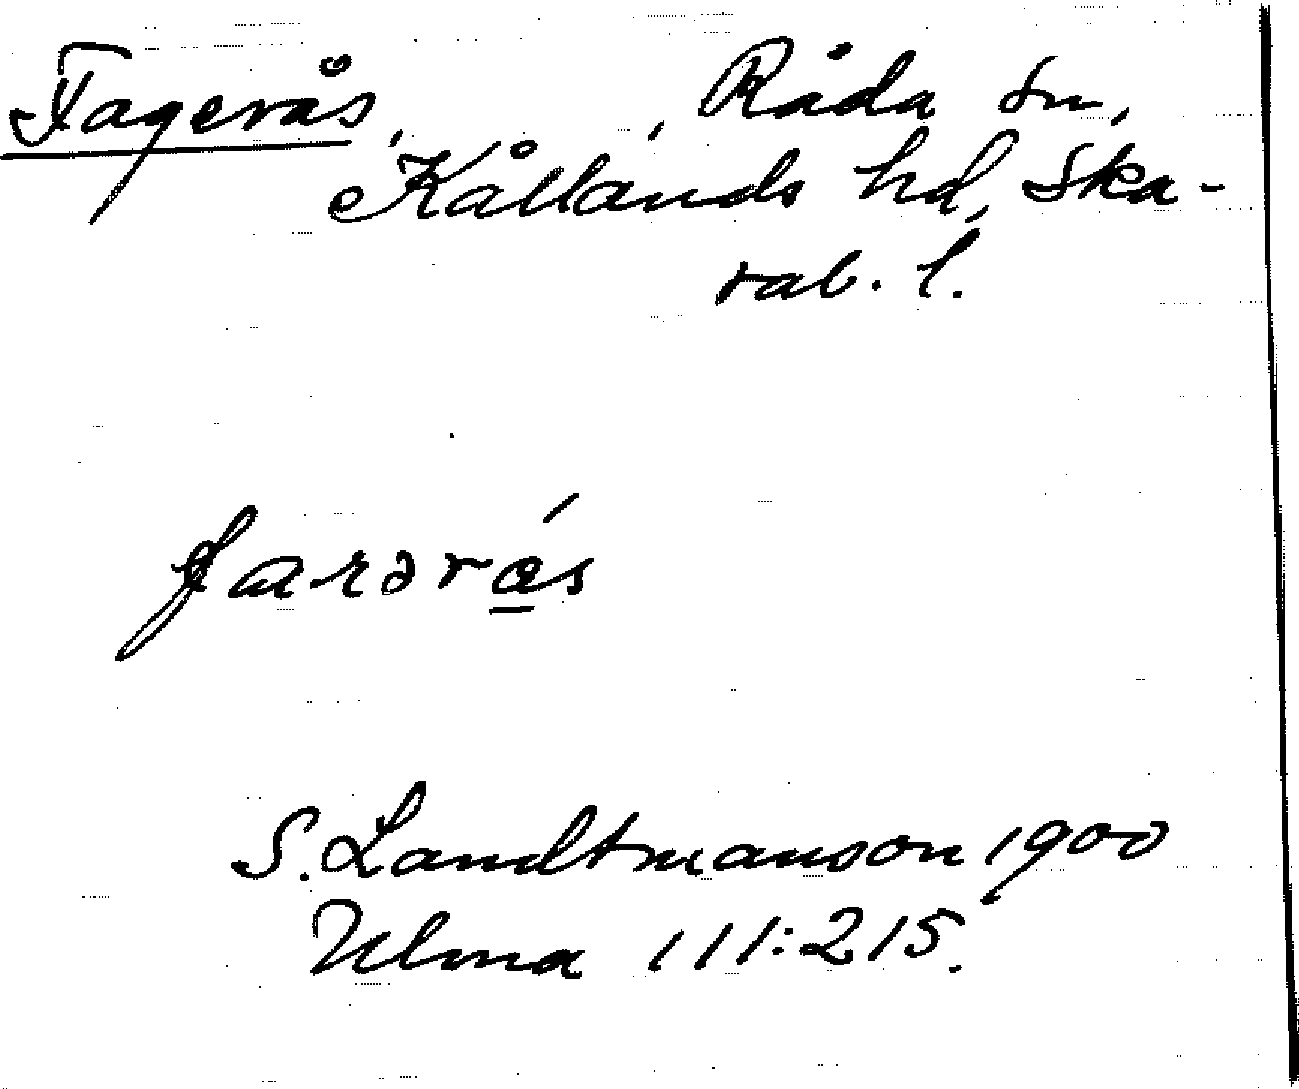 Fagerås, , Råda sn,
Kållands hd, Ska-
rab. l.
farərás
S. Landtmanson 1900
Ulma 111:215.